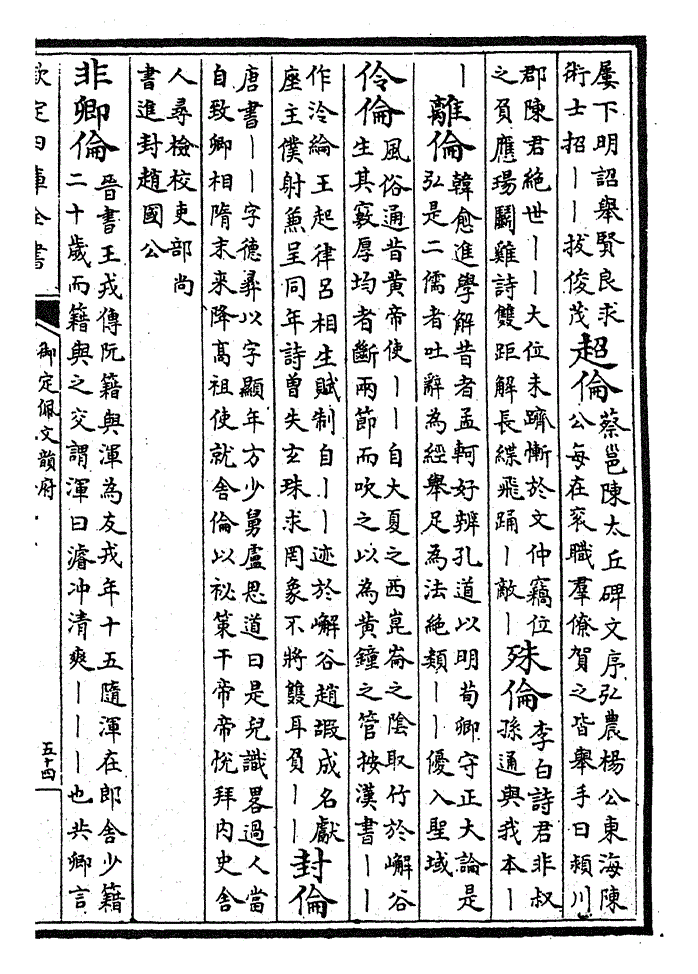 屢下明詔舉賢良求
術士招丨丨拔俊茂
超倫
蔡邕陳太丘碑文序弘農楊公東海陳
公每在衮職羣僚賀之皆舉手曰頴川
郡陳君絕世丨丨大位未躋慙於文仲竊位
之負應瑒鬭雞詩雙距解長緤飛踊丨敵丨
殊倫
李白詩君非叔
孫通與我本丨
丨
離倫
韓愈進學解昔者孟軻好辨孔道以明荀卿守正大論是
弘是二儒者吐辭為經舉足為法絕類丨丨優入聖域
伶倫
風俗通昔黃帝使丨丨自大夏之西崑崙之陰取竹於嶰谷
生其竅厚均者斷兩節而吹之以為黃鐘之管按漢書丨丨
作泠綸王起律呂相生賦制自丨丨迹於嶰谷趙嘏成名獻
座主僕射兼呈同年詩曽失玄珠求罔象不將雙耳負丨丨
封倫
唐書丨丨字德彝以字顯年方少舅盧思道曰是兒識畧過人當
自致卿相隋末來降高祖使就舍倫以祕策干帝帝悅拜内史舍
人尋檢校吏部尚
書進封趙國公
非卿倫
晉書王戎傳阮籍與渾為友戎年十五隨渾在郎舍少籍
二十歲而籍與之交謂渾曰濬冲清爽丨丨丨也共卿言
欽定四庫全書
御定佩文韻府
五十四